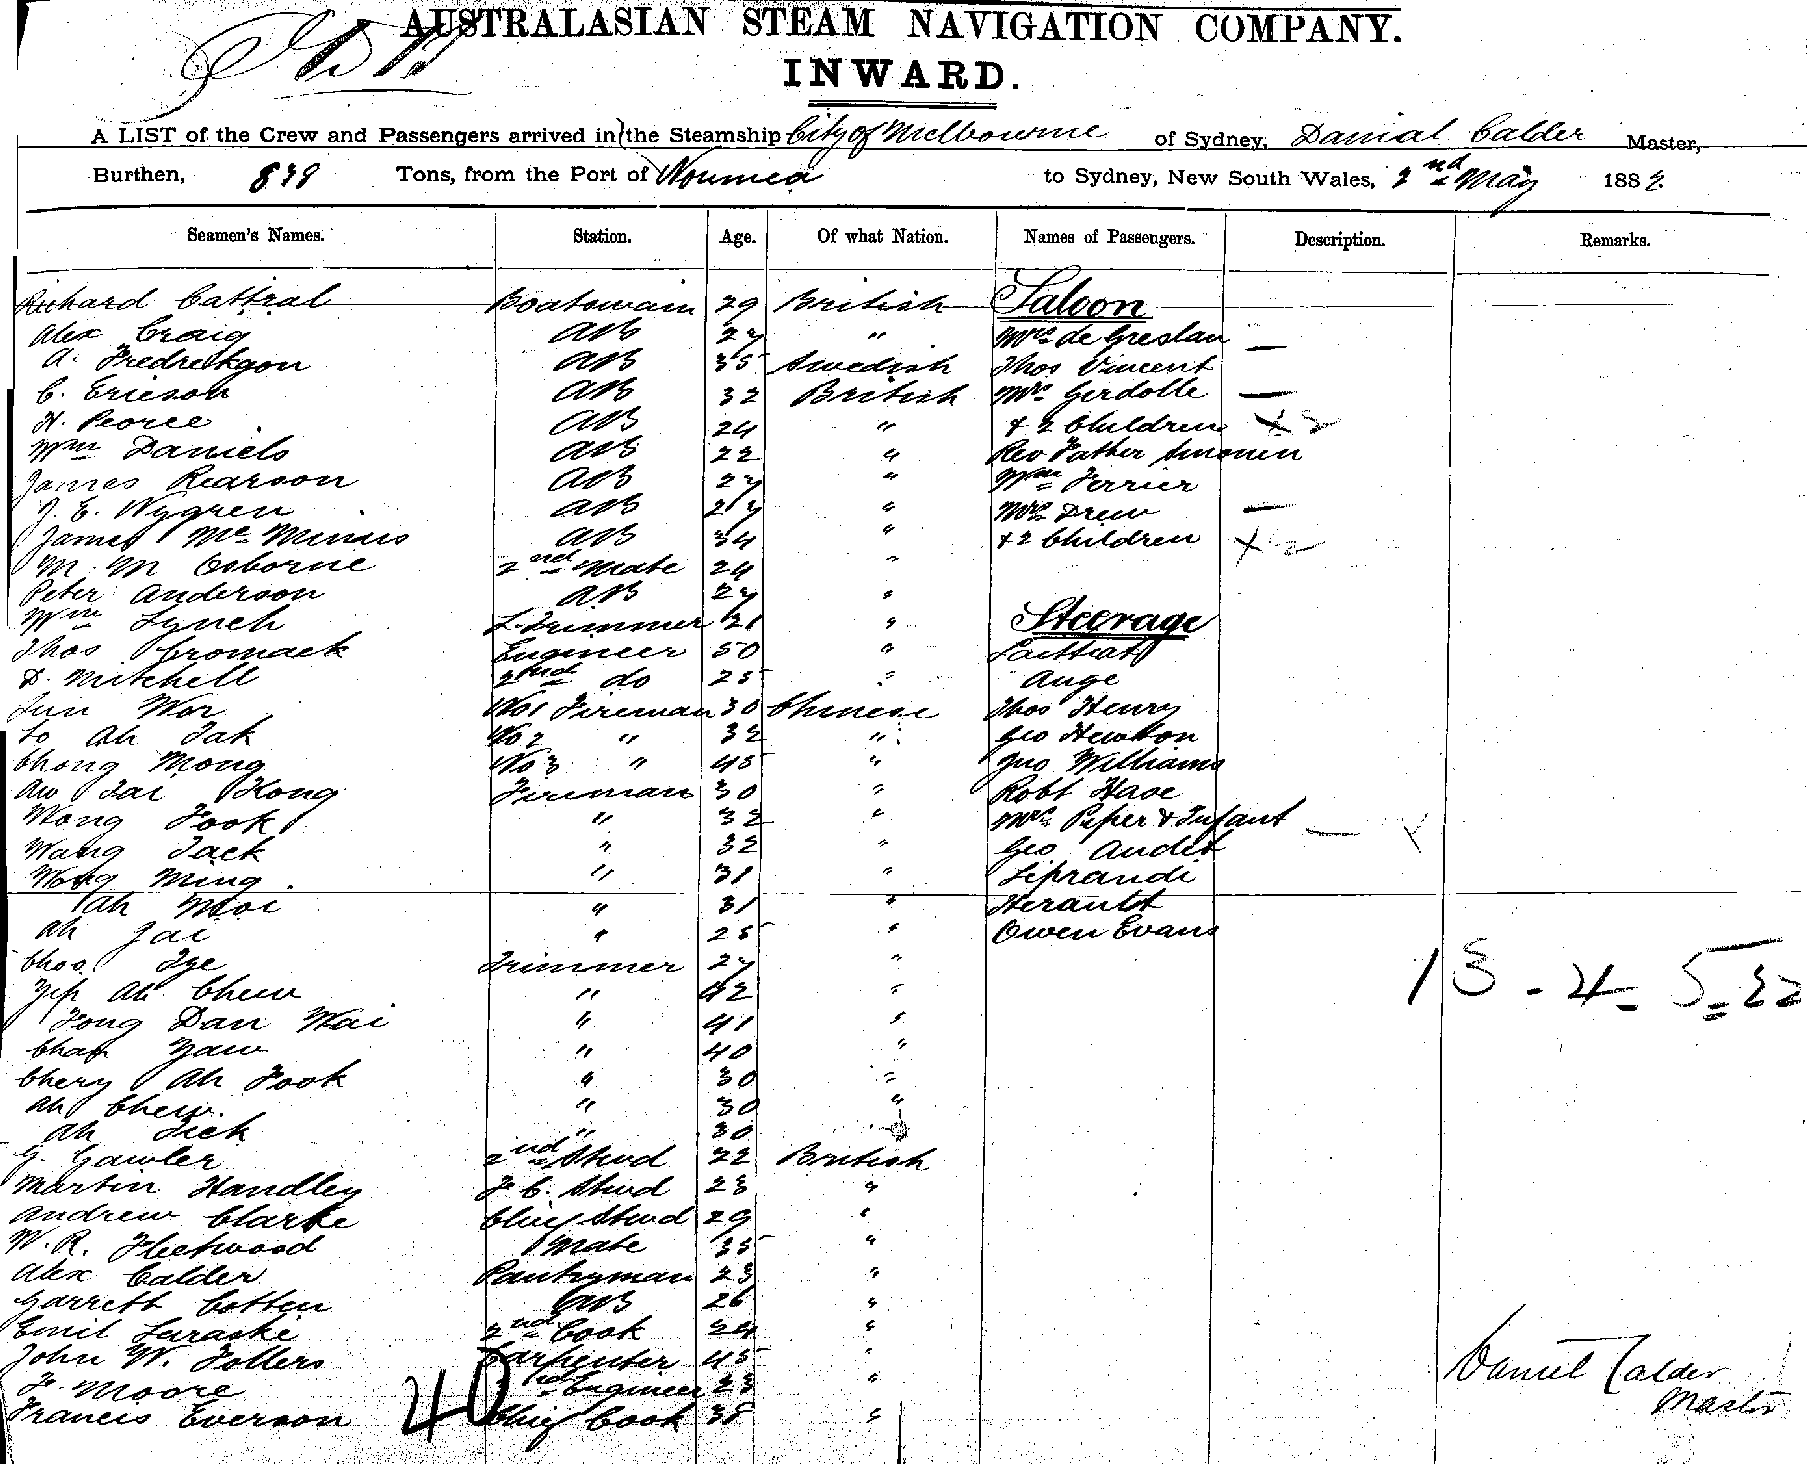 AUSTRALASIAN STEAM NAVIGATION COMPANY.
INWARD.
A LIST of the Crew and Passengers arrived in the Steamship City of Melbourne of Sydney, Danial Calder Master,
Burthen, 839 Tons, from the Port of Noumea to Sydney, New South Wales, 2nd May 1882.
Seamen's Names. Station. Age. Of what Nation. Names of Passengers. Description. Remarks.
Richard Cattral Boatswain 29 British Saloon
Alex Craig AB 27 " Mrs de Greslan —
A. Fredrickson AB 35 Swedish Thos Vincent
C. Ericson AB 32 British Mrs Gerdolle —
H. Pearce AB 24 " + 2 Children × 2
Wm Daniels AB 22 " Rev Father
James Rearson AB 27 " Wm Ferrier
J. E. Nygren AB " Mrs Drew —
James McMinnis AB 34 " + 2 Children × 2
M. M Osborne 2nd Mate 24 "
Peter Anderson AB 27 "
Wm Lynch L. Trimmer 21 " Steerage
Thos Cromack Engineer 50 "
D. Mitchell 2nd do 25 " Auge
Jun Wor No1 Fireman 30 Chinese Thos Henry
To Ah Tak No 2 " 32 " Geo Hewton
Chong Mong No 3 " 45 " Jno Williams
Aw Tai Kong Fireman 30 " Robt Hase
Wong Fook " 32 " Mrs Piper & Infant —
Wang Jack " 32 " Geo Audet
Wong Ming " 31 " Liprandi
Ah Moi " 31 " Herault
Ah Jai " 25 " Owen Evans
Choo Tye Trimmer 27 "
Yip Ah Chew " 42 "
Fong Dan Wai " 41 "
Chap Yaw " 40 "
Chery Ah Fook " 30 "
Ah Chew " 30 "
Ah Tick " 30 "
G. Gawler 2nd Stwd 22 British
Martin Handley F. C. Stwd 23 "
Andrew Clarke Chief Stwd 29 "
W. R. Fleetwood Mate 35 "
Alex Calder Pantryman 23 "
Garrett Cotten AB 26 "
Emil Laraski 2nd Cook 24 "
John W. Follers Carpenter 45 "
F. Moore Engineer 23 "
Francis Everson 40 Chief Cook 38 "
13 - 4 - 5 = 22
Daniel Calder
Master